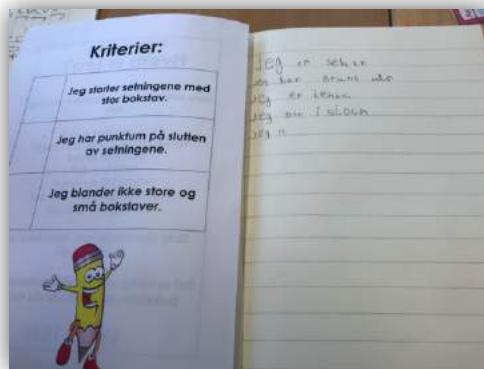 Kriterier:
Jeg starter setningene med
stor bokstav.
Jeg har punktum på slutten
av setningene.
Jeg blander ikke store og
små bokstaver.
Jeg er
har brune
Jeg er
Jeg i
Jeg